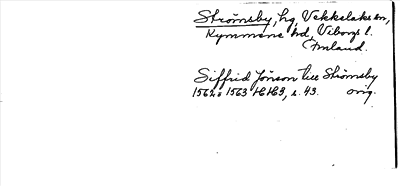 Strømsby, hg, Vekkelaks sn,
Kymmene hd, Viborgs l.
Finland.
Siffrid Jönson ... Strömsby
1562 o 1563 HH69, s. 43. orig.